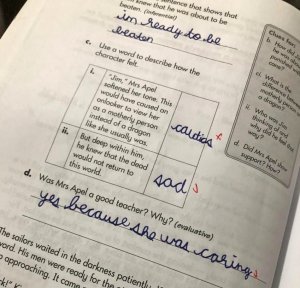 sentence that shows that
knew that he was about to be
beaten. (inferential)
im ready to be
beaten
c. Use a word to describe how the
character felt.
i.
"Jim," Mrs Apel
softened her tone. This
would have caused an
onlooker to view her
as a motherly person
instead of a dragon
like she usually was.
ii.
But deep within him,
he knew that the dead
would not return to
this world.
sad
d. Was Mrs Apel a good teacher? Why? (evaluative)
yes because she was caring
The sailors waited in the darkness patiently.
word. His men were ready for the
approaching. It came
b. How
he was about
punished
cane?
ci. What is the
difference
motherly person
a dragon
ii. Who was Jim
thinking of and
why did he feel this
way?
d. Did Mrs Apel show
support? How?